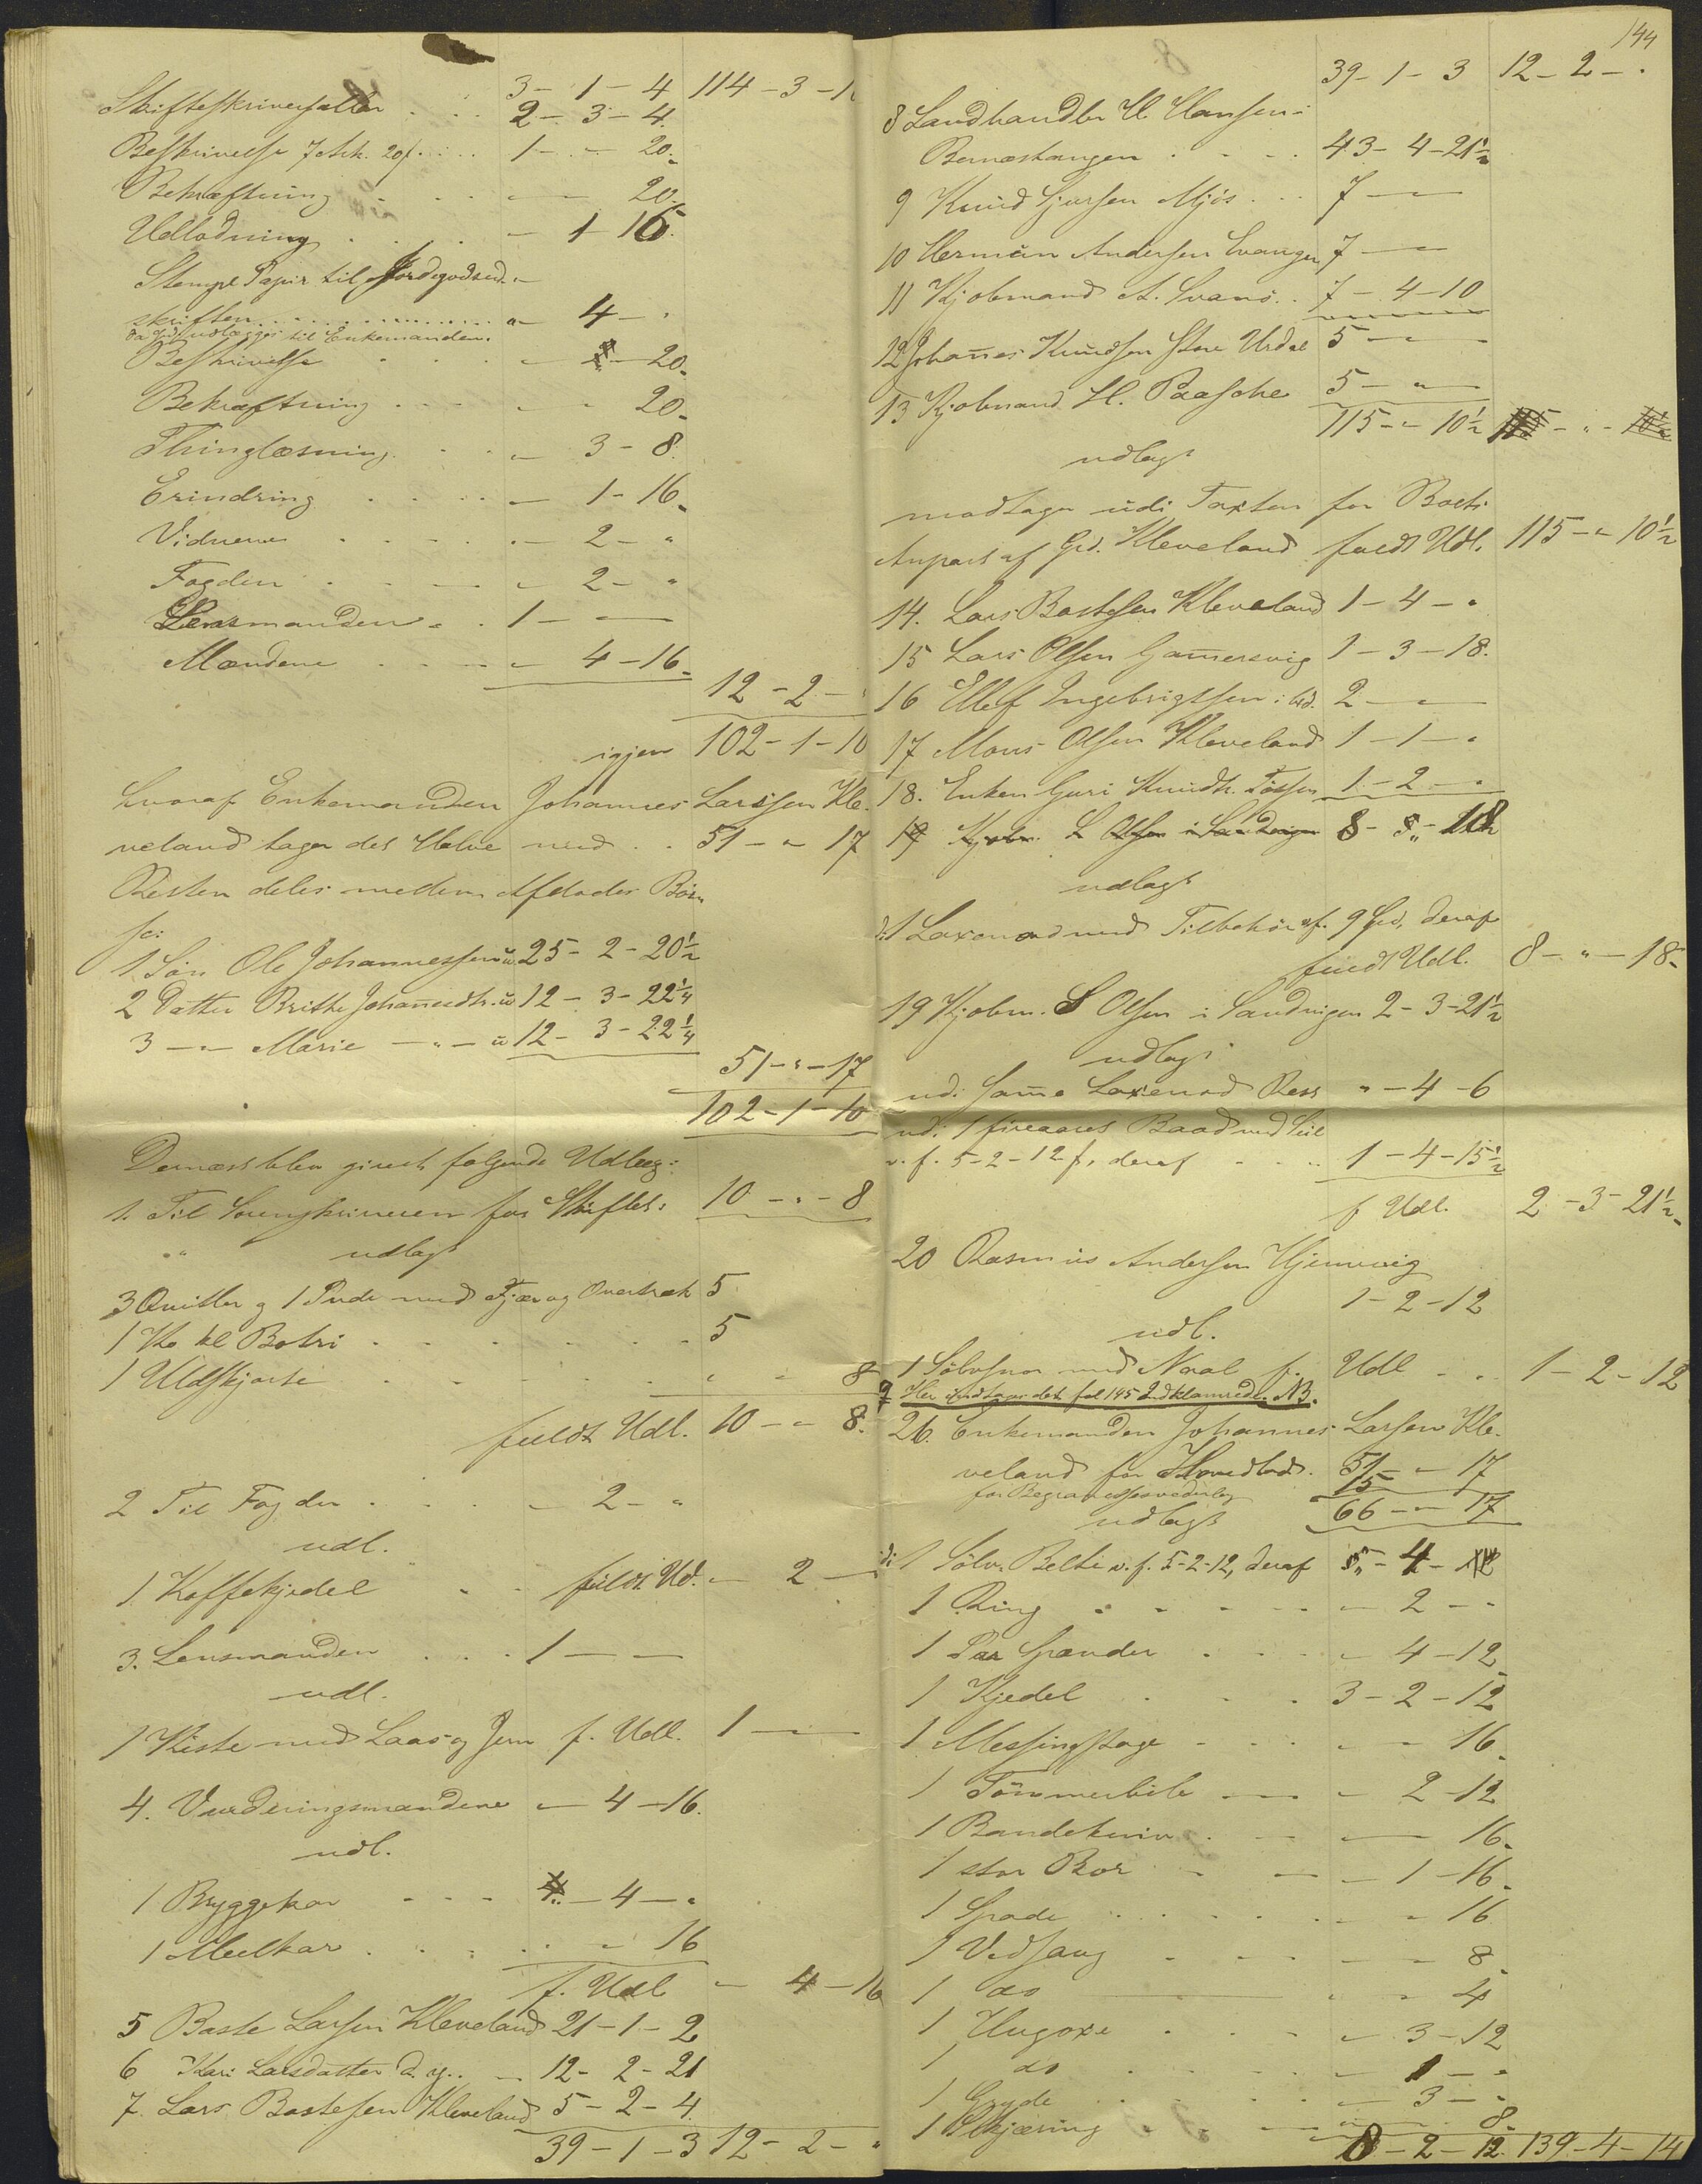 3 - 1 - 4 114 - 3 - 1
Skifteskriversaller . . . 2 - 3 - 4.
Beskrivelse 7 Ark. 20 f. . . . 1 - " - 20.
Bekræftning . . . " - 20.
Udlodning . . . " - 1 - 16.
Stempl. Papir til Jordegodsud-
skriften . . . " - 4 - "
da Gd. udlægges til Enkemanden.
Beskrivelse . . . " - " - 20.
Bekræftning . . . " - " - 20.
Thinglæsning . . . " - 3 - 8.
Erindring . . . " - 1 - 16.
Vidnerne . . . " - 2 - "
Fogden . . . " - 2 - "
Lensmanden . . . 1 - " -
Mændene . . . " - 4 - 16.
12 - 2 - "
igjen 102 - 1 - 10
hvoraf Enkemanden Johannes Larssen Kle-
veland tager det Halve med . . 51 - " - 17
Resten deles mellem Afdødes Børn
sc:
1. Søn Ole Johannessen m. 25 - 2 - 20½
2 Datter Brithe Johannesdtr. u. 12 - 3 - 22¼
3 - " - Marie - " - u 12 - 3 - 22¼
51 - " - 17
102 - 1 - 10
Dernæst blev gjort følgende Udlæg:
1. Til Sorenskriveren for Skiftet: 10 - " - 8
" udlagt
3 Qvitler og 1 Pude med Fjær og Overtræk 5
1 Ko kl Botri . . . 5
1 Uldskjorte . . . " - " - 8
fuldt Udl. 10 - " - 8.
2 Til Fogden . . . " - 2 - "
udl.
1 Kaffekjedel . . fuldt Ud. " - 2 -
3. Lensmanden . . . 1 - " -
udl.
1 Kiste med Laas og Jern f. Udl. 1 - " -
4. Vurderingsmændene " - 4 - 16.
udl.
1 Bryggekar . . . " - 4 - "
1 Meelkar . . . " - 16
f. Udl " - 4 - 16
5 Baste Larsen Kleveland 21 - 1 - 2
6 Kari Larsdatter d. y. . - 12 - 2 - 21
7. Lars Bastesen Kleveland 5 - 2 - 4.
39 - 1 - 3 12 - 2 - "
144
39 - 1 - 3 12 - 2 - "
8 Landhandler H Hansen i
Bernestangen . . . 43 - 4 - 21½
9 Knud Sjursen Mjøs . . . 7 - " -
10 Herman Andersen Evanger 7 - " -
11 Kjøbmand A. Svanø . . 7 - 4 - 10
12 Johannes Knudsen Store Urdal 5 - " -
13 Kjøbmand H. Paasche 5 - " -
115 - " - 10½ 115 - " - 10½
udlagt
modtager udi Taxten for Boets
Anpart af Grd. Kleveland fuldt Udl. 115 - " - 10½
14. Lars Bastesen Kleveland 1 - 4 - "
15 Lars Olsen Gamersvig 1 - 3 - 18.
16 Ellef Ingebrigtsen ibd. 2 - " -
17 Mons Olsen Kleveland 1 - 1 - "
18. Enken Guri Knudtr. Tøssen 1 - 2 - "
19 Kjobm. L Olsen i Sandvigen 8 - " - 18
udlagt
di 1 Laxenod med Tilbehør af. 9 Spd, deraf
fuldt Udl. 8 - " - 18.
19 Kjobm. S Olsen i Sandvigen 2 - 3 - 21½
udlagt
udi samme Laxenod Rest " - 4 - 6
udi 1 fireaares Baad med Seil
v. f. 5 - 2 - 12 f, deraf . . . 1 - 4 - 15½
f Udl. 2 - 3 - 21½.
20 Rasmus Andersen Hjemvig
1 - 2 - 12
udl.
1 Sølvsnor med Naal f. Udl . . 1 - 2 - 12
Her indtages det fol 145 Indklamrede. NB.
26. Enkemanden Johannes Larsen Kle-
veland for Hovedlod . 51 - " - 17
for Begravelsesvederlag 15
udlagt 66 - " - 17
di 1 Sølv-Belte v. f. 5 - 2 - 12, deraf " - 4 -
1 Ring . . . " - 2 - "
1 Par Spænder . . . " - 4 - 12
1 Kjedel . . . 3 - 2 - 12
1 Messingstage . . . " - " - 16.
1 Tømmerbile . . . " - 2 - 12
1 Bandekniv . . . " - 16.
1 stor Bor . . . " - 1 - 16.
1 Spade . . . " - 16
1 Vedsaug . . . " - " - 8.
1 do . . . " - " - 4
1 Hugoxe . . . " - 3 - 12
1 do . . . " - 1 - "
1 Gryde . . . " - 3 - "
1 Skjæring . . . " - " - 8.
8 - 2 - 12. 139 - 4 - 14